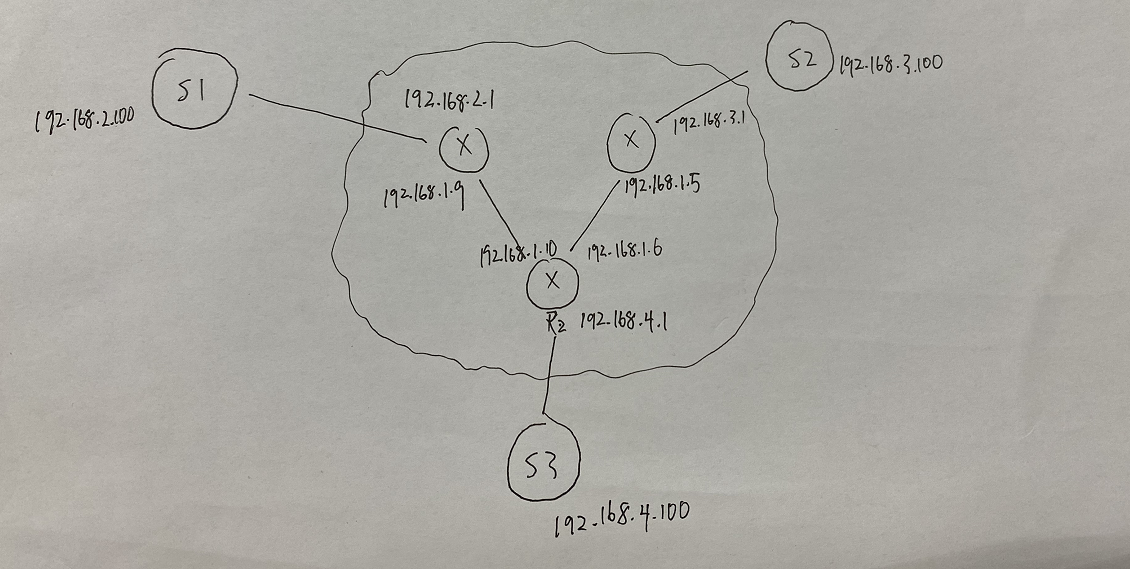 S1
192.168.2.100
S2
192.168.3.100
192.168.2.1
X
192.168.1.9
X
192.168.3.1
192.168.1.5
192.168.1.10
192.168.1.6
X
R2
192.168.4.1
S3
192.168.4.100